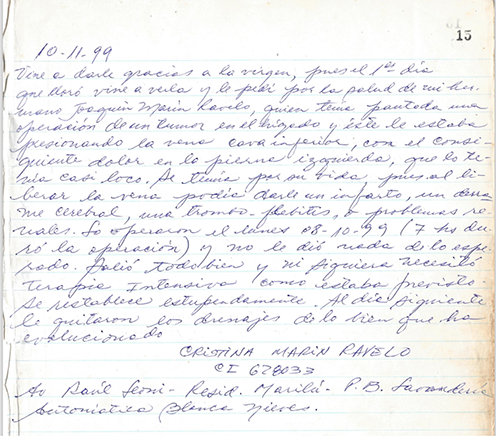 15
10-11-99
Vine a darle gracias a la virgen, pues el 1er día
que lloró vine a verla y le pedí por la salud de mi her-
mano Joaquín Marín Ravelo, quien tenía pautada una
operación de un tumor en el hígado y éste le estaba
presionando la vena cava inferior, con el consi-
guiente dolor en la pierna izquierda, que lo te-
nía casi loco. Se temía por su vida pues al li-
berar la vena podía darle un infarto, un derra-
me cerebral, una trombo-flebitis, o problemas re-
nales. Lo operaron el lunes 08-10-99 (7 hs du-
ró la operación) y no le dió nada de lo espe-
rado. Salió todo bien y ni siquiera necesitó
terapia Intensiva como estaba previsto.
Se restablece estupendamente. Al día siguiente
le quitaron los drenajes de lo bien que ha
evolucionado
CRISTINA MARIN RAVELO
CI 628033
Av Raúl Leoni - Resid. Marilú - P.B. Lavandería
Automática Blanca Nieves.